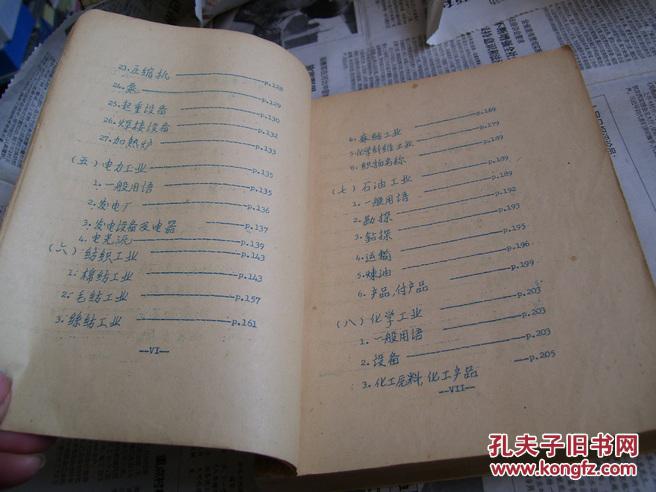 23.压缩机 p.128
24.泵 p.129
25.起重设备 p.130
26.焊接设备 p.132
27.加热炉 p.133
(五)电力工业 p.135
1.一般用语 p.135
2.发电厂 p.136
3.发电设备及电器 p.137
4.电光源 p.139
(六)纺织工业 p.143
1.棉纺工业 p.143
2.毛纺工业 p.157
3.丝纺工业 p.161
--VI--
4.麻纺工业 p.169
5.化学纤维工业 p.179
6.织物名称 p.189
(七)石油工业 p.189
1.一般用语 p.189
2.勘探 p.192
3.钻探 p.193
4.运输 p.195
5.炼油 p.196
6.产品,付产品 p.199
(八)化学工业 p.203
1.一般用语 p.203
2.设备 p.203
3.化工原料,化工产品 p.205
--VII--
孔夫子旧书网
www.kongfz.com